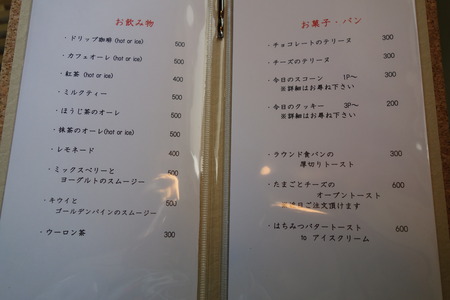 お飲み物
・ドリップ珈琲 (hot or ice) 500
・カフェオーレ (hot or ice) 500
・紅茶 (hot or ice) 400
・ミルクティー 500
・ほうじ茶のオーレ 500
・抹茶のオーレ(hot or ice) 500
・レモネード 400
・ミックスベリーと
ヨーグルトのスムージー 500
・キウイと
ゴールデンパインのスムージー 500
・ウーロン茶 300
お菓子・パン
・チョコレートのテリーヌ 300
・チーズのテリーヌ 300
・今日のスコーン 1P〜 300
※詳細はお尋ね下さい
・今日のクッキー 3P〜 200
※詳細はお尋ね下さい
・ラウンド食パンの 300
厚切りトースト
・たまごとチーズの 600
オーブントースト
ご注文頂けます
・はちみつバタートースト 600
to アイスクリーム